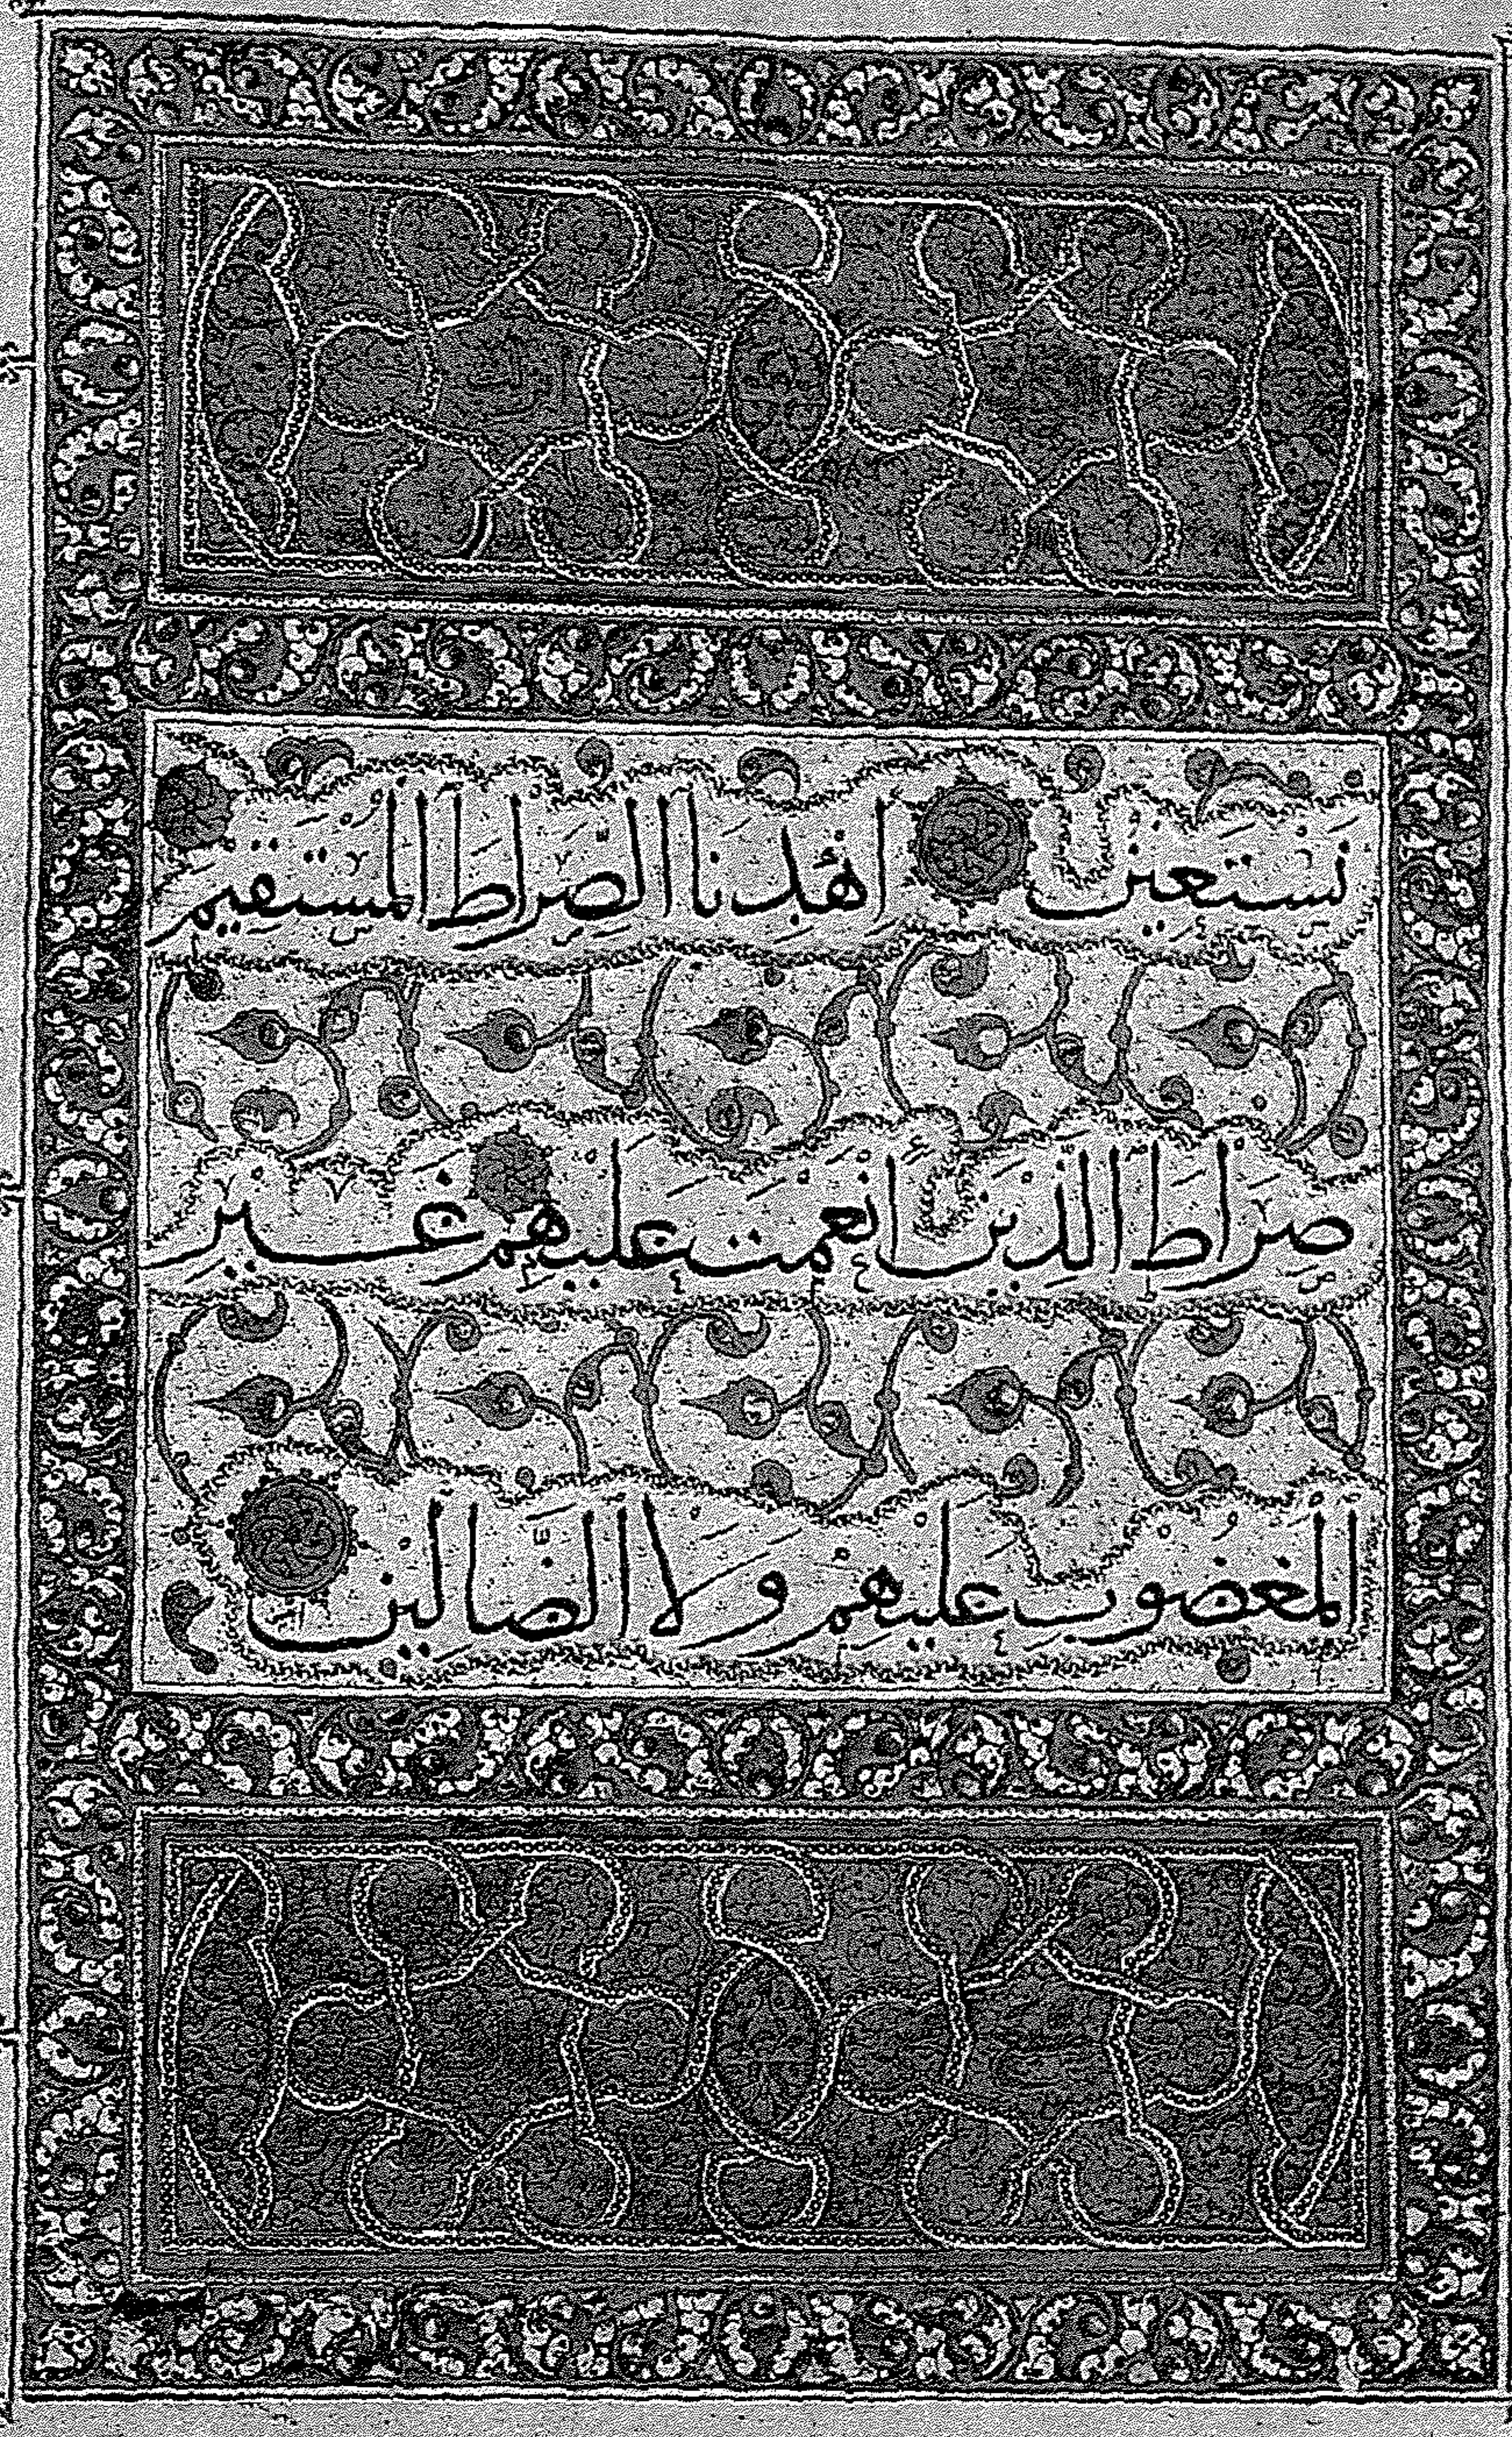 نَسْتَعِينُ اهْدِنَا الصِّرَاطَ الْمُسْتَقِيمَ
صِرَاطَ الَّذِينَ أَنْعَمْتَ عَلَيْهِمْ غَيْرِ
الْمَغْضُوبِ عَلَيْهِمْ وَلَا الضَّالِّينَ